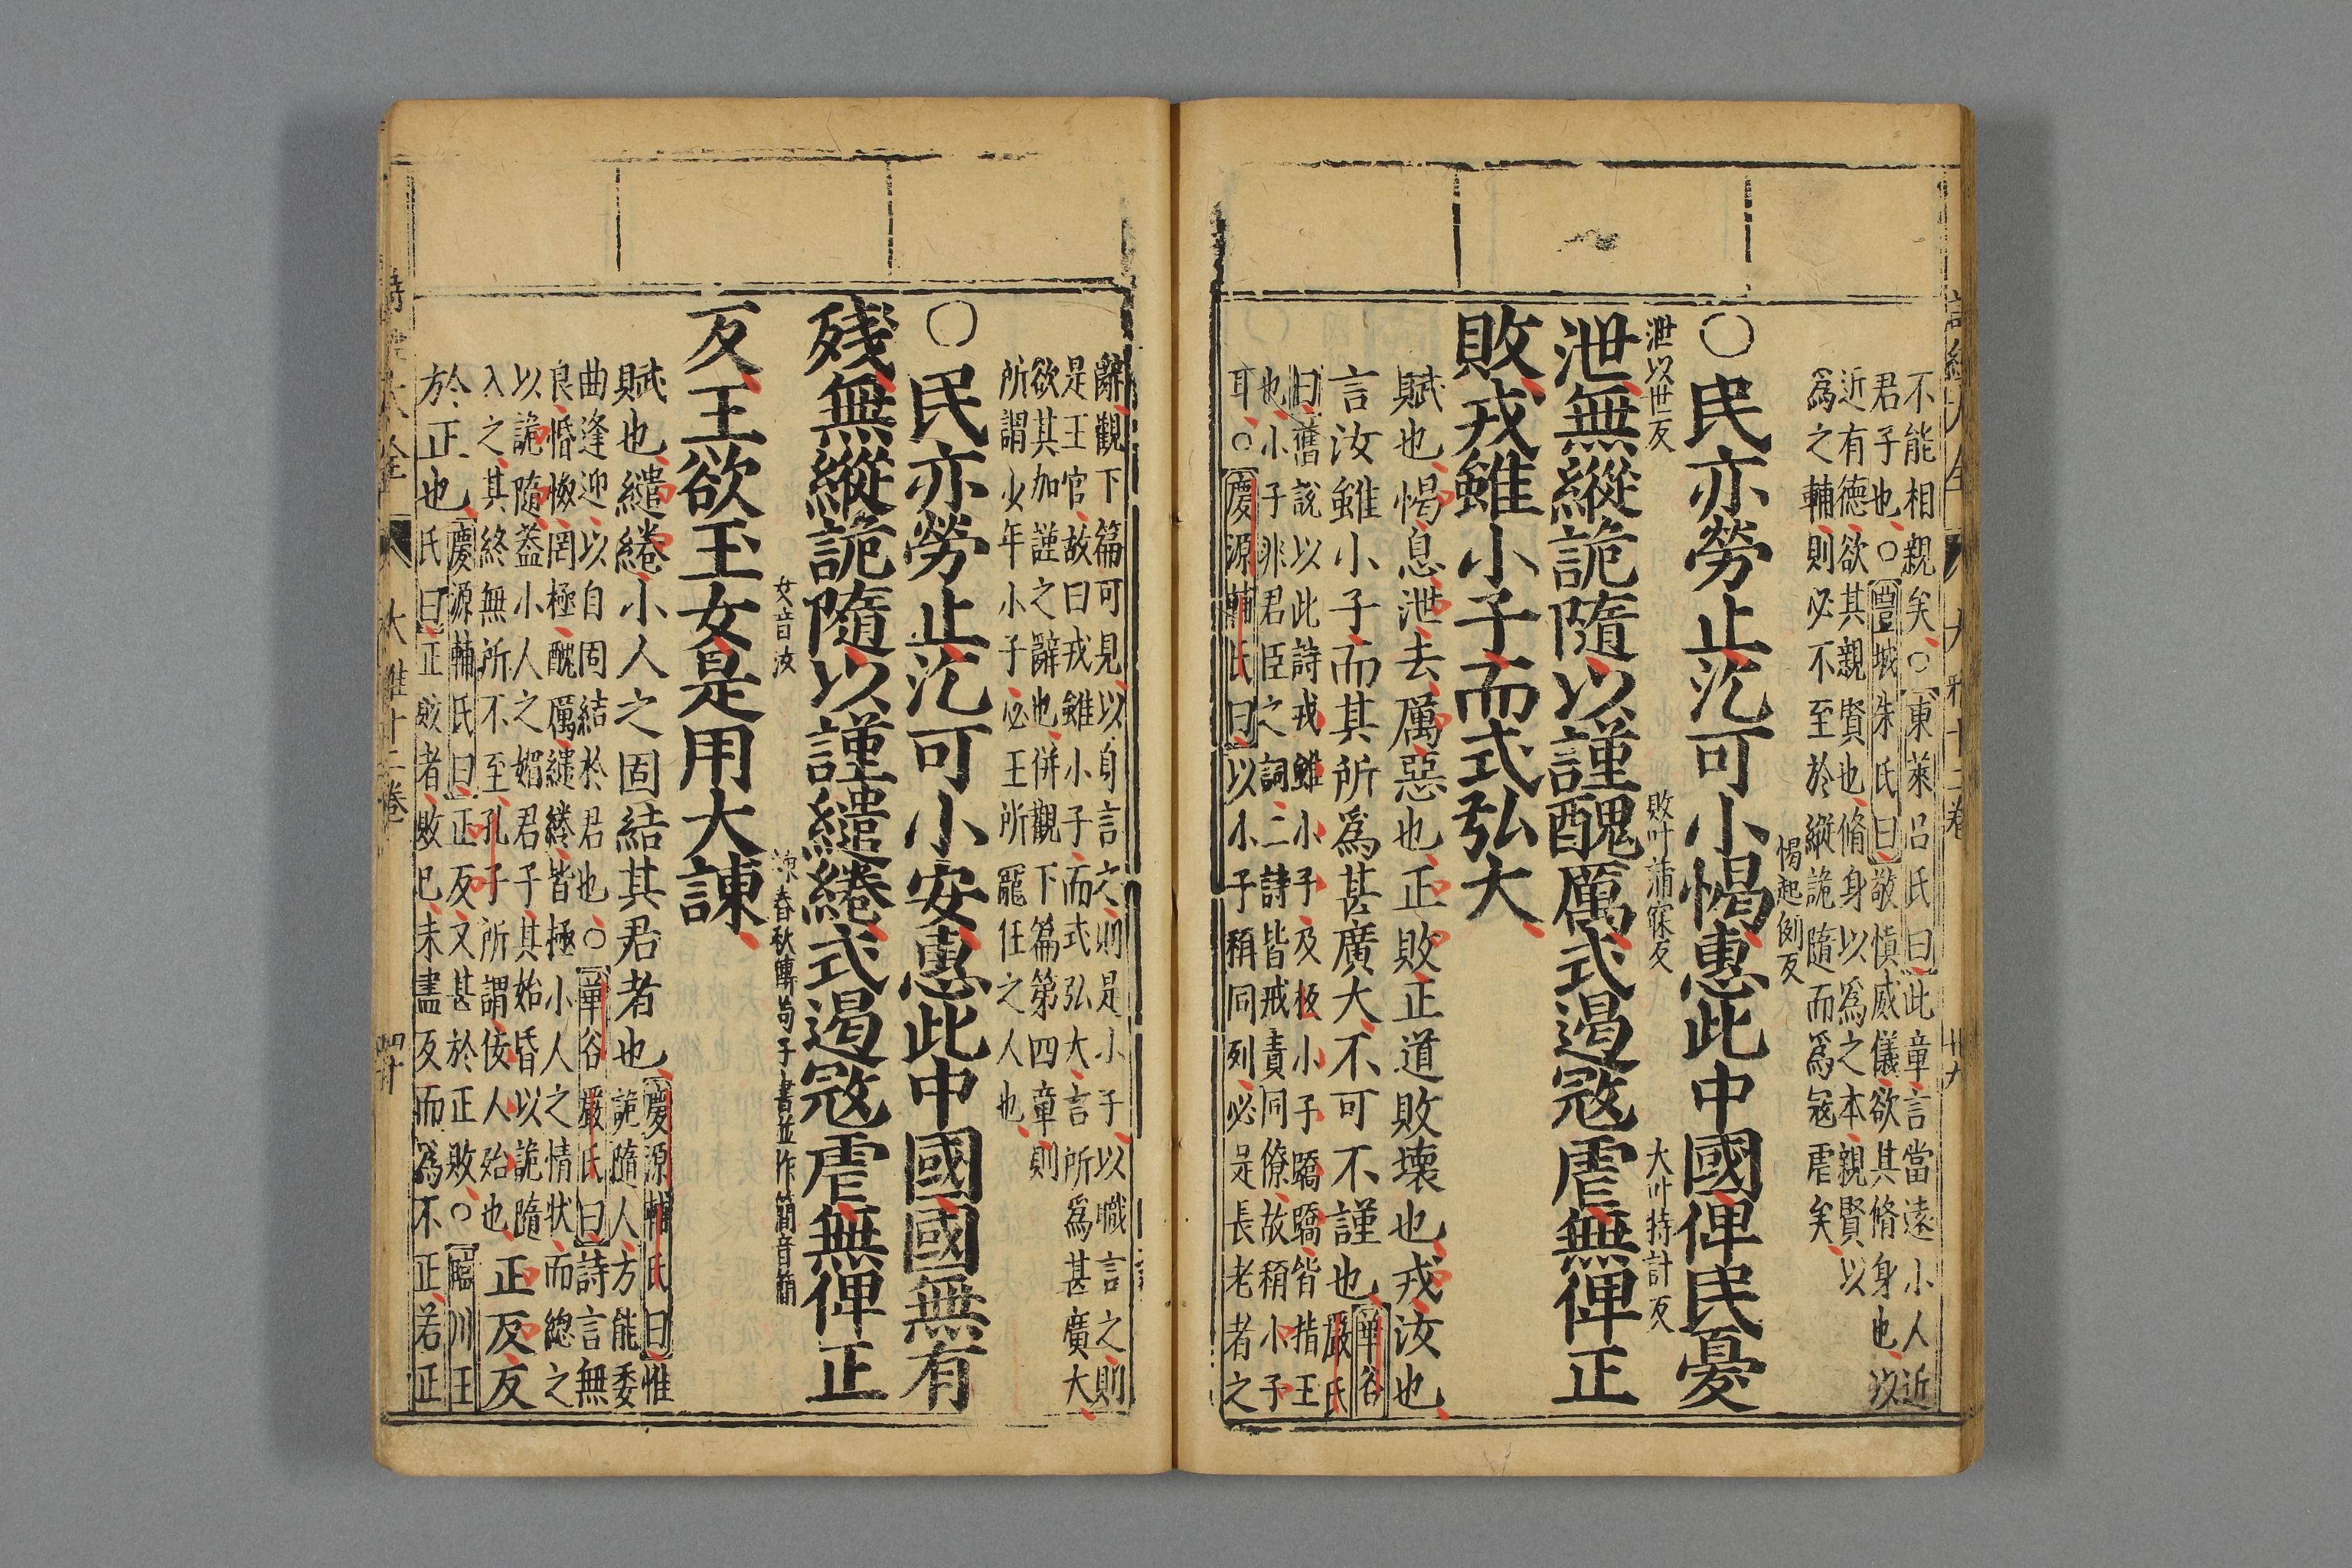 詩經大全 大雅十二卷 卅九
不能相親矣○東萊呂氏曰此章言當遠小人近
君子也○豐城朱氏曰敬慎威儀欲其脩身也以
近有德欲其親賢也脩身以為之本親賢以
爲之輔則必不至於縱詭隨而爲寇虐矣
○民亦勞止汔可小愒惠此中國俾民憂
愒起例反
泄以世反 敗叶蒲寐反 大叶特計反
泄無縱詭隨以謹醜厲式遏寇虐無俾正
敗戎雖小子而式弘大
賦也愒息泄去厲惡也正敗正道敗壞也戎汝也
言汝雖小子而其所爲甚廣大不可不謹也華谷嚴氏
曰舊說以此詩戎雖小子及板小子蹻蹻皆指王
也小子非君臣之詞二詩皆戒責同僚故稱小子
耳○慶源輔氏曰以小子稱同列必是長老者之
辭觀下篇可見以自言之則是小子以職言之則
是王官故曰戎雖小子而式弘大言所爲甚廣大
欲其加謹之辭也併觀下篇第四章則
所謂少年小子必王所寵任之人也
○民亦勞止汔可小安惠此中國國無有
殘無縱詭隨以謹繾綣式遏寇虐無俾正
反王欲玉女是用大諫
女音汝 諫春秋傳荀子書並作簡音簡
賦也繾綣小人之固結其君者也慶源輔氏曰惟
詭隨人方能委
曲逢迎以自固結於君也○華谷嚴氏曰詩言無
良惛怓罔極醜厲繾綣皆極小人之情狀而總之
以詭隨蓋小人之媚君子其始昏以詭隨
入之其終無所不至孔子所謂佞人殆也正反反
於正也慶源輔氏曰正反又甚於正敗○臨川王
氏曰正敗者敗已未盡反而爲不正若正
詩經大全 大雅十二卷 四十